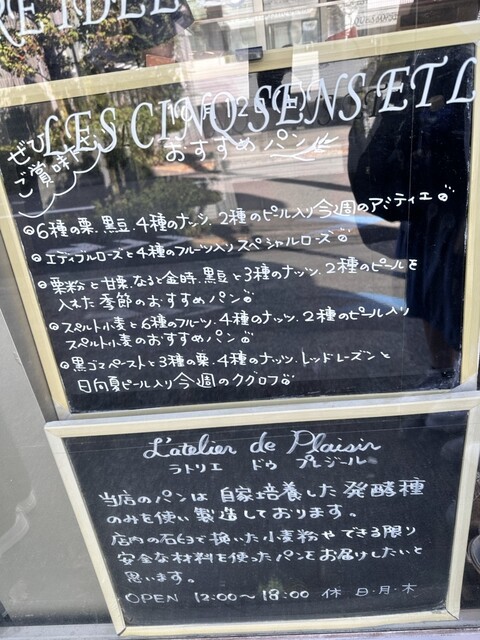 LES CINQ SENS ET L
ぜひ
ご賞味下さい
おすすめパン
6種の栗、黒豆、4種のナッツ、2種のピール入り今週のアミティエ
エディブルローズと4種のフルーツ入りスペシャルローズ
栗粉と甘栗、なると金時、黒豆と3種のナッツ、2種のピールを
入れた季節のおすすめパン
スペルト小麦と6種のフルーツ、4種のナッツ、2種のピール入り
スペルト小麦のおすすめパン
黒ゴマペーストと3種の栗、4種のナッツ、レッドレーズンと
日向夏ピール入り今週のクグロフ
L'atelier de Plaisir
ラトリエ ドゥ プレジール
当店のパンは自家培養した発酵種
のみを使い製造しております。
店内の石臼で挽いた小麦粉やできる限り
安全な材料を使ったパンをお届けしたいと
思います。
OPEN 12:00〜18:00 休 日・月・木